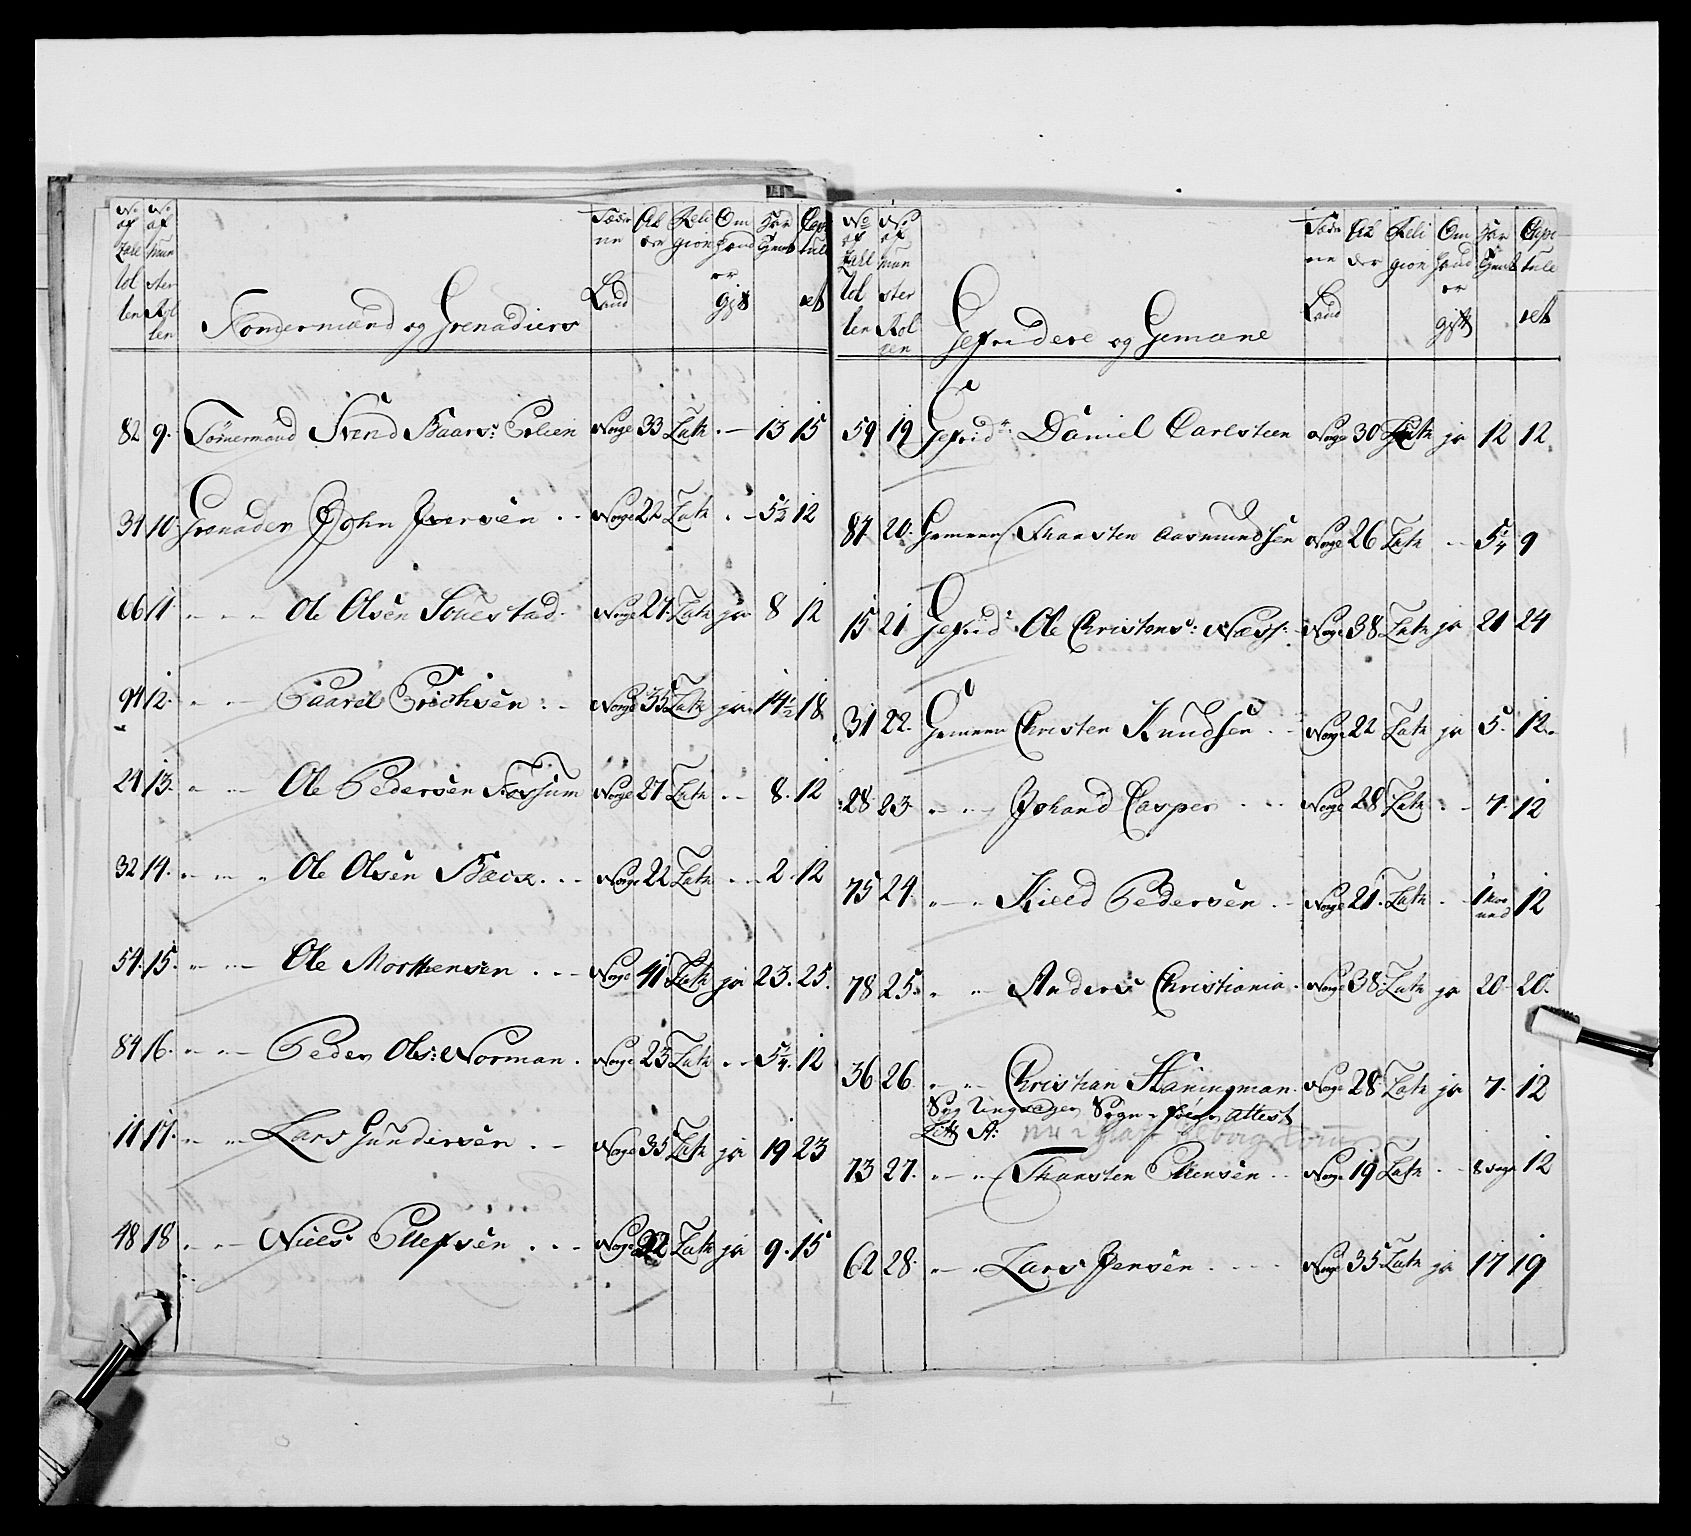 No af Rul lel len
No af Mun ster Rol len
Tømmermand og Grenadiers
Føde ne Land
Al der
Reli gion
Om hand er gift
Har tient
Capi tule ret
82 9. Tømmermand Svend Baars: Norge 33 Luth - 13 15
31 10 Grenader John Iversen Norge 22 Luth - 5½ 12
66 11 " " Ole Olsen Norge 27 Luth ja 8 12
94 12. " " Paavel Erichsen Norge 35 Luth ja 14½ 18
24 13. " " Ole Pedersen Fossum Norge 27 Luth - 8 12
32 14. " " Ole Olsen Norge 22 Luth - 2 12
54 15. " " Ole Morthensen Norge 41 Luth ja 23. 25.
84 16. " " Peder Ols: Norman Norge 23 Luth - 12
11 17. " " Lars Gundersen Norge 35 Luth ja 19 23
48 18 " " Niels Ellefsen Norge Luth ja 9. 15
No af len
No af Mun ster Rol len
Gefridere og Gemæne
Føde ne Land
Al der
Reli gion
Om hand er gift
Har tient
Capi tule ret
59 19 Gefrid: Daniel Carlsten Norge 30 Luth ja 12 12
87 20. Gemeen Thorsten Aasmundsen Norge 26 Luth - 9
15 21 Gefrid: Ole Christens: Næss: Norge 38 Luth ja 21 24
31 22. Gemeen Christen Knudsen Norge 22 Luth ja 5. 12
28 23 " " Johand Casper Norge 28 Luth - 7 12
75 24. " " Kield Pedersen Norge 21. Luth - 1 12
78 25. " " Anders Christiania Norge 38 Luth ja 20 20.
36 26 " " Christian Haningman Norge 28 Luth ja 7. 12
Attest
Litt A:
73 27. " " Thorsten Ellensen Norge 19 Luth - 8 12
62 28. " " Lars Jensen Norge 35 Luth ja 17 19